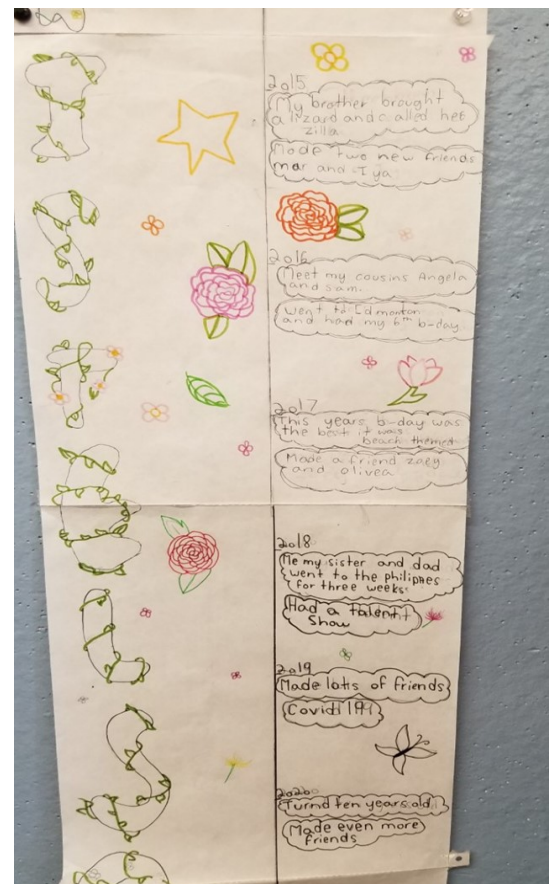 2015
My brother brought
a lizard and called her
zilla
Made two new friends
mar and Iya
2016
Meet my cousins Angela
and sam.
went to Edmonton
and had my 6th b-day
2017
This years b-day was
the best it was
beach themed
Made a friend zaey
and olivea
2018
Me my sister and dad
went to the philipnes
for three weeks.
Had a talentt
Show
2019
Made lots of friends
Covid 19
2020
Turnd ten years old.
Made even more
friends